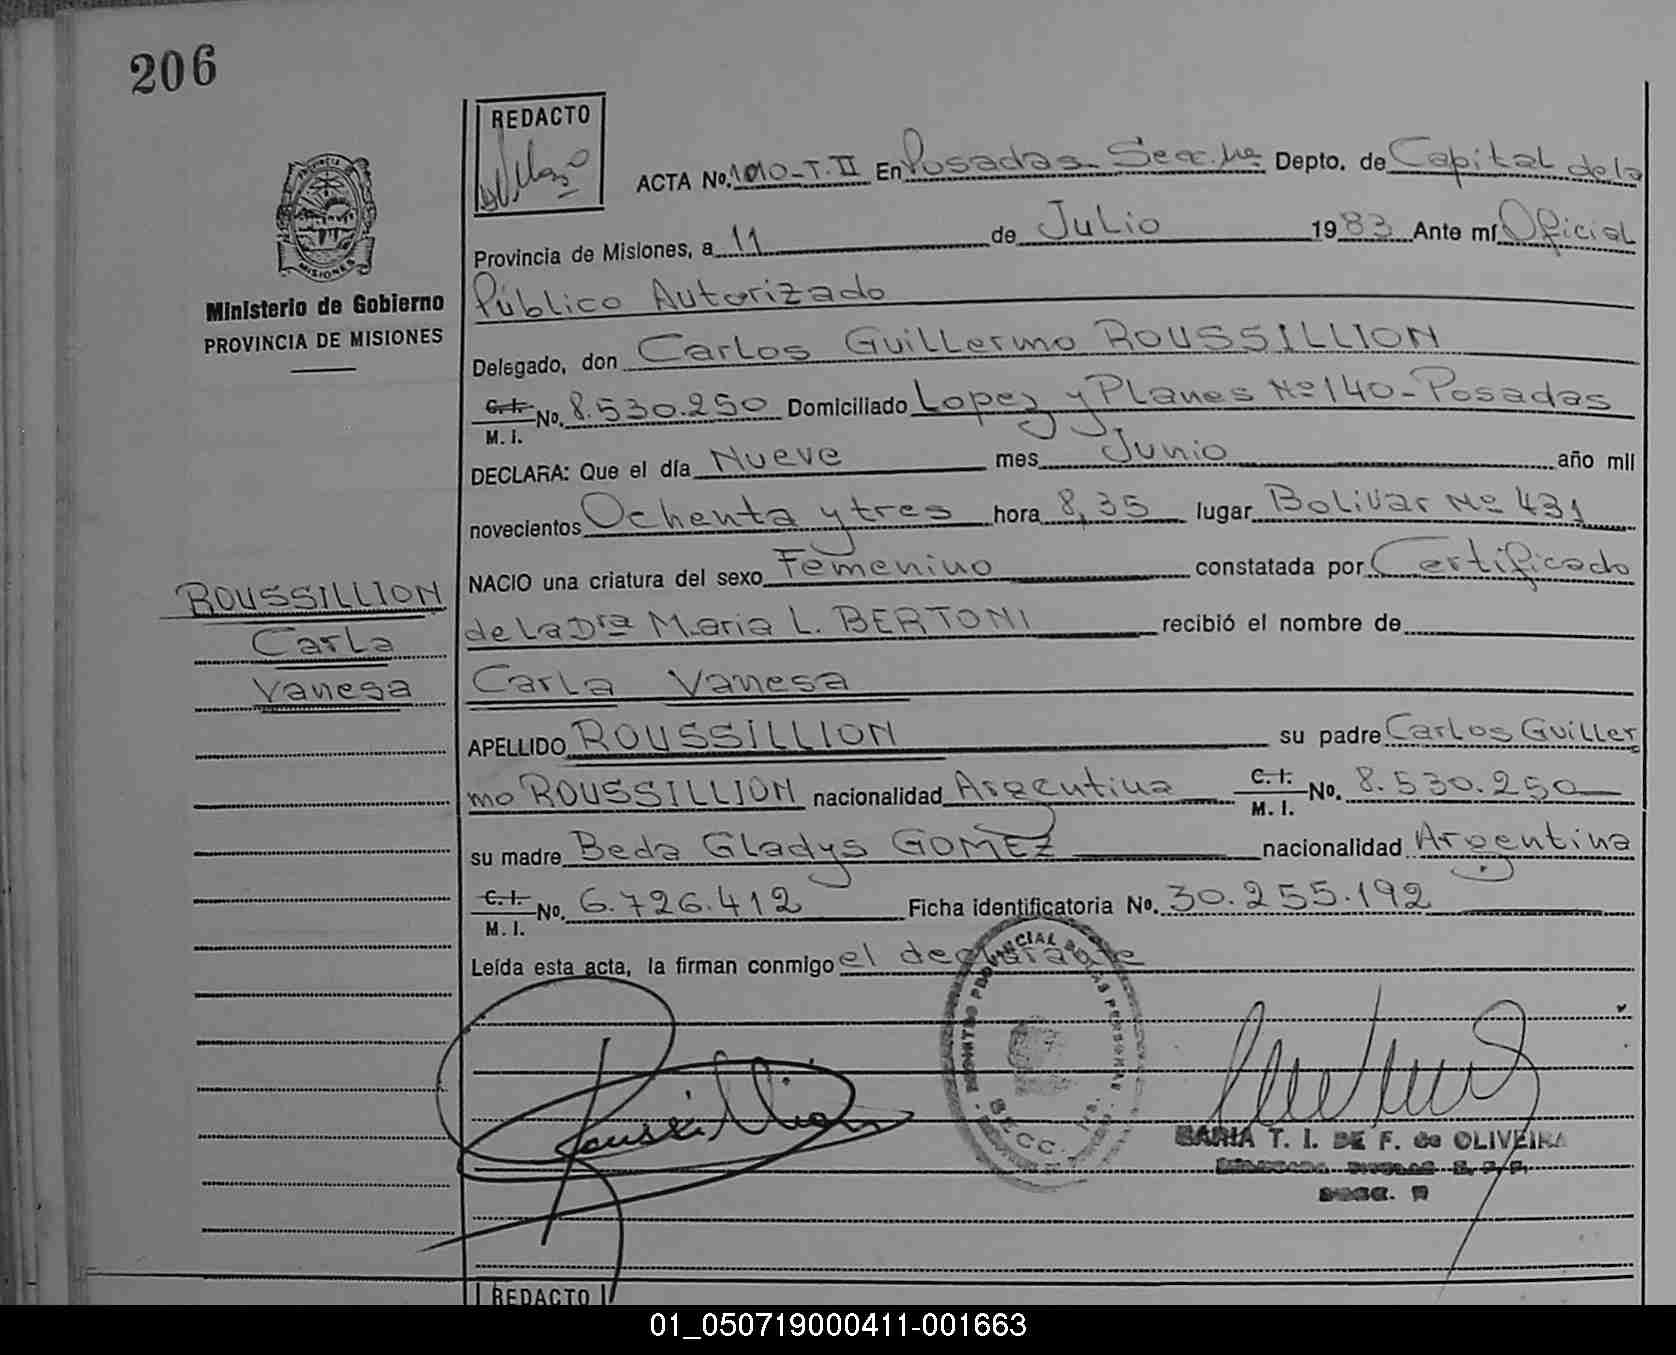 206
REDACTO
ACTA No. 1010-T.II En Posadas Secc. 1a. Depto. de Capital de la
Provincia de Misiones, a 11 de Julio 1983 Ante mí Oficial
Público Autorizado
MISIONES
Ministerio de Gobierno
PROVINCIA DE MISIONES
Delegado, don Carlos Guillermo ROUSSILLION
C. I. M. I. No. 8.530.250 Domiciliado Lopez y Planes Nº 140 - Posadas
DECLARA: Que el día Nueve mes Junio año mil
novecientos Ochenta y tres hora 8,35 lugar Bolivar Nº 431
NACIO una criatura del sexo Femenino constatada por Certificado
de la Dra Maria L. BERTONI recibió el nombre de
Carla Vanesa
ROUSSILLION
Carla
Vanesa
APELLIDO ROUSSILLION su padre Carlos Guiller
mo ROUSSILLION nacionalidad Argentina C. I. M. I. No. 8.530.250
su madre Beda Gladys GOMEZ nacionalidad Argentina
C. I. M. I. No. 6.726.412 Ficha identificatoria No. 30.255.192
Leída esta acta, la firman conmigo el declarante
Roussillion
MARIA T. I. DE F. de OLIVEIRA
REDACTO
01_050719000411-001663